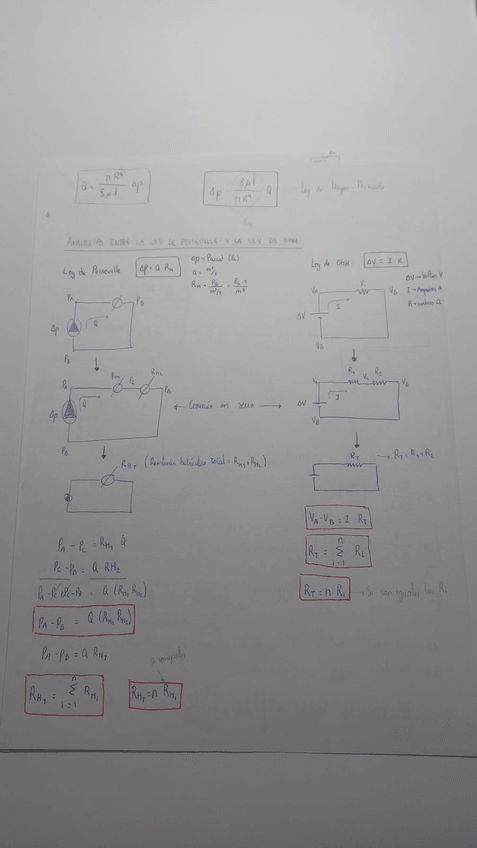 Q = πR⁴/8μl Δp
Δp = 8μl/πR⁴ Q
Ley de Hagen-Poiseuille
ANALOGÍAS ENTRE LA LEY DE POISEUILLE Y LA LEY DE OHM
Ley de Poiseuille
Δp = Q · R_H
Δp = Pascal (Pa)
Q = m³/s
R_H = Pa/m³/s = Pa·s/m³
Ley de OHM
ΔV = I · R
ΔV → Voltios V
I → Amperios A
R →
Ω
P_A
P_B
Q
Δp
P_B
V_A
R
V_B
I
ΔV
V_B
P_A
R_H1
P_C
R_H2
P_B
Q
Δp
P_B
← Conexión en serie →
V_A
R_1
V_C
R_2
V_B
I
ΔV
V_B
R_HT (Resistencia hidráulica Total = R_H1 + R_H2)
R_T
→ R_T = R_1 + R_2
V_A - V_B = I · R_T
R_T = Σ R_i
i=1
n
R_T = n R_i → Si son iguales las R_i
P_A - P_C = R_H1 Q
P_C - P_B = Q R_H2
P_A - P_C + P_C - P_B = Q (R_H1 R_H2)
P_A - P_B = Q (R_H1 R_H2)
P_A - P_B = Q R_HT
si son iguales
R_HT = Σ R_Hi
i=1
n
R_HT = n R_Hi